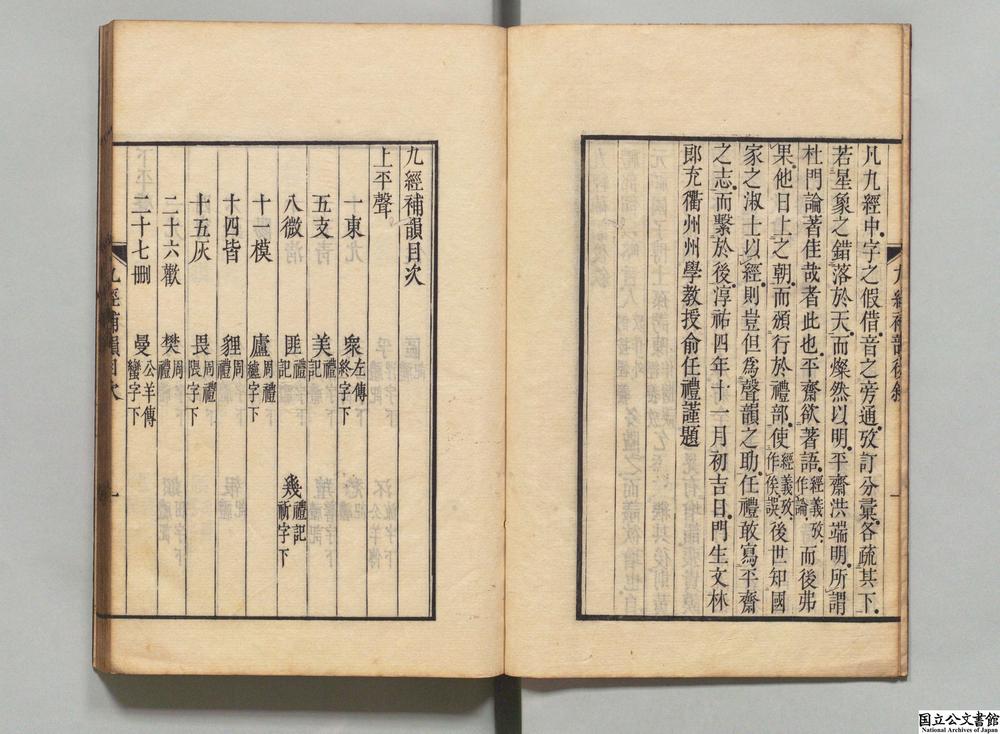 凡九經中字之假借音之旁通攷訂分彙各疏其下
若星象之錯落於天而燦然以明平齋洪端明所謂
杜門論著佳哉者此也平齋欲著語經義攷作論而後弗
果他日上之朝而頒行於禮部使經義攷作俟誤後世知國
家之淑士以經則豈但爲聲韻之助任禮敢寫平齋
之志而繫於後淳祐四年十一月初吉日門生文林
郎充衢州州學教授俞任禮謹題
九經補韻目次
上平聲
一東 衆左傳終字下
五支 美禮記
八微 匪禮記 幾禮記祈字下
十一模 廬周禮纑字下
十四皆 貍周禮
十五灰 畏周禮隈字下
二十六歡 樊周禮
二十七刪 曼公羊傳蠻字下
九經補韻目次 一
国立公文書館
National Archives of Japan